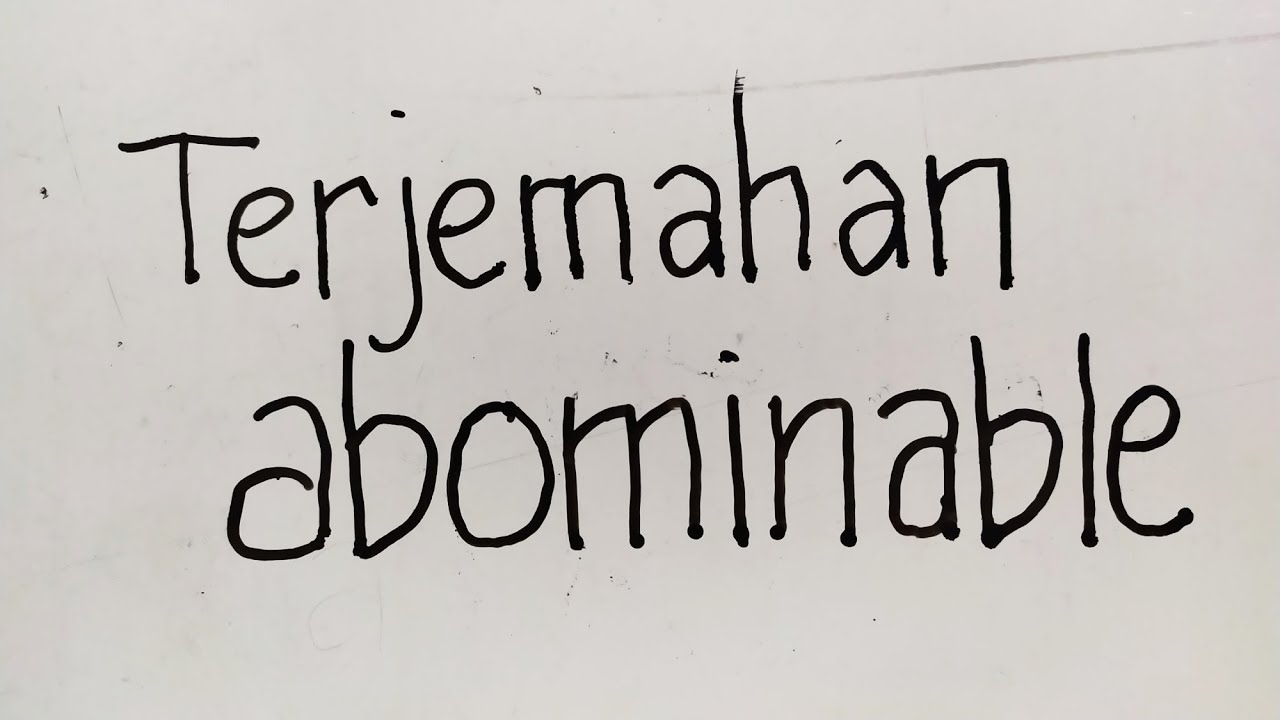 Terjemahan
abominable